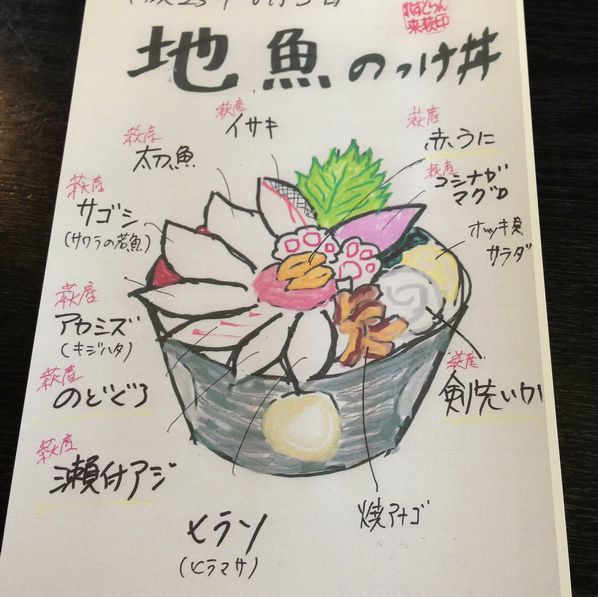 地魚のっけ丼
萩産
イサキ
萩産
太刀魚
萩産
サゴシ
(サワラの若魚)
萩産
アカミズ
(キジハタ)
萩産
のどぐろ
萩産
瀬付アジ
ヒラソ
(ヒラマサ)
焼アナゴ
萩産
剣先いか
ホッキ貝
サラダ
萩産
コシナガ
マグロ
萩産
赤うに